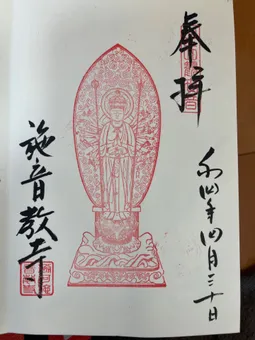 奉拝
和四年四月三十日
施音教寺